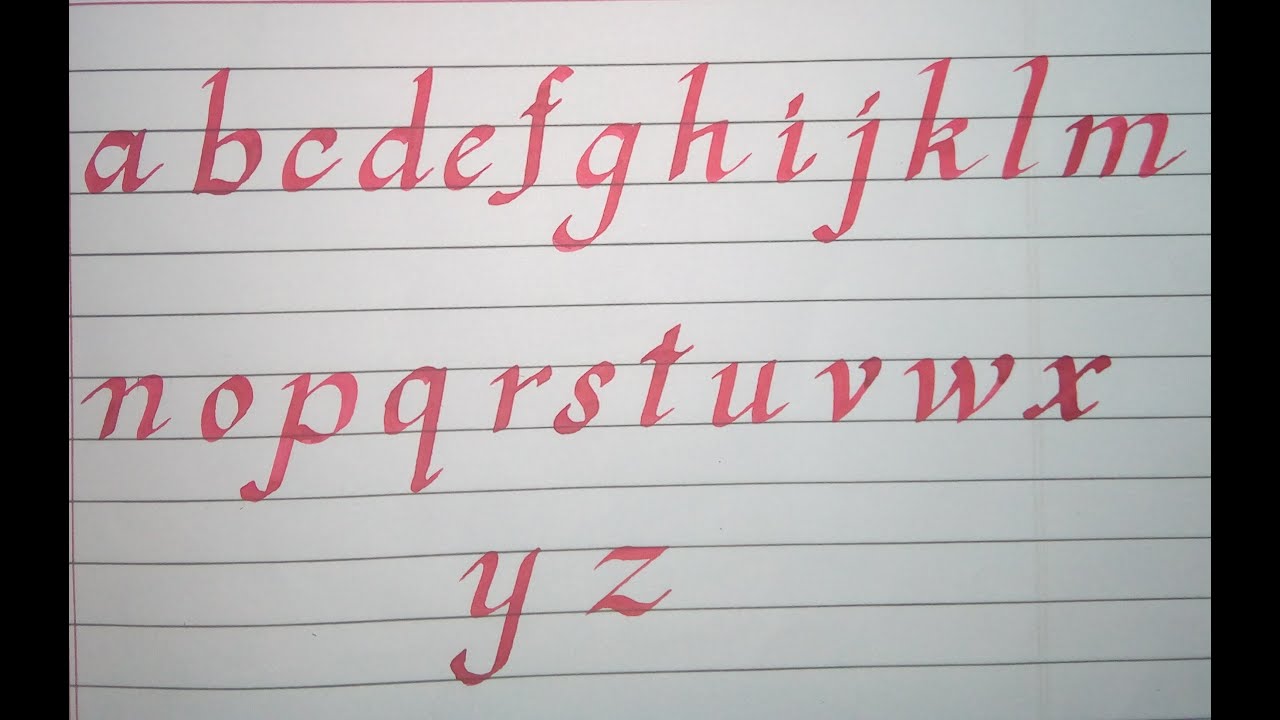 a b c d e f g h i j k l m
n o p q r s t u v w x
y z